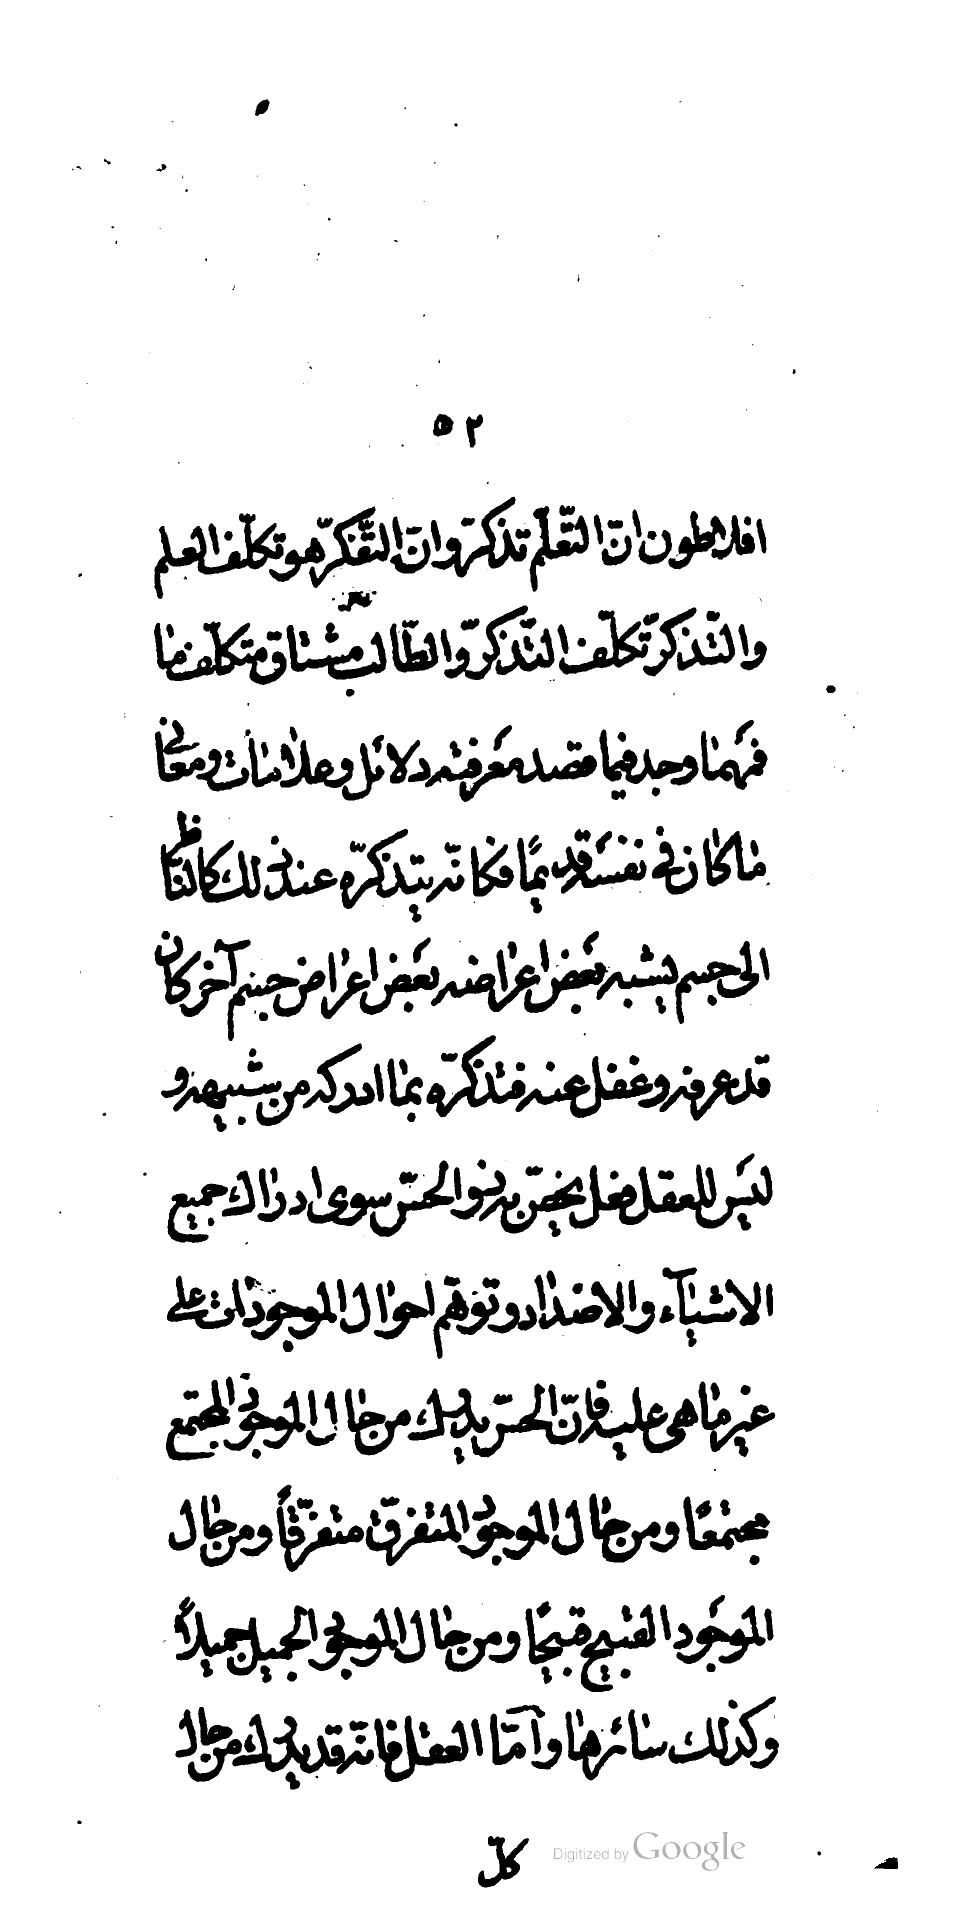 ٥٢
افلاطون انّ التّعلّم تذكّر وانّ التّفكّر هو تكلّف العلم
والتّذكّر تكلّف التّذكّر والطّالب مشتاق متكلّف ما
فمهما وجد فيما قصد معرفته دلائل وعلامات ومعاني
ما كان في نفسه قديمًا فكانّه يتذكّره عند ذلك كالنّاظر
الى جسم يشبه بعض اعراضه بعض اعراض جسم آخر كان
قد عرفه وغفل عنه فتذكّره بما ادركه من شبيهه و
ليس للعقل فعل يخصّ به دون الحسّ سوى ادراك جميع
الاشيآء والاضداد وتوهّم احوال الموجودات على
غير ما هى عليه فانّ الحسّ يدرك من حال الموجود المجتمع
مجتمعًا ومن حال الموجود المتفرّق متفرّقًا ومن حال
الموجود القبيح قبيحًا ومن حال الموجود الجميل جميلاً
وكذلك سائرها وآمّا العقل فانّه قد يدرك من حال
كلّ
Digitized by Google